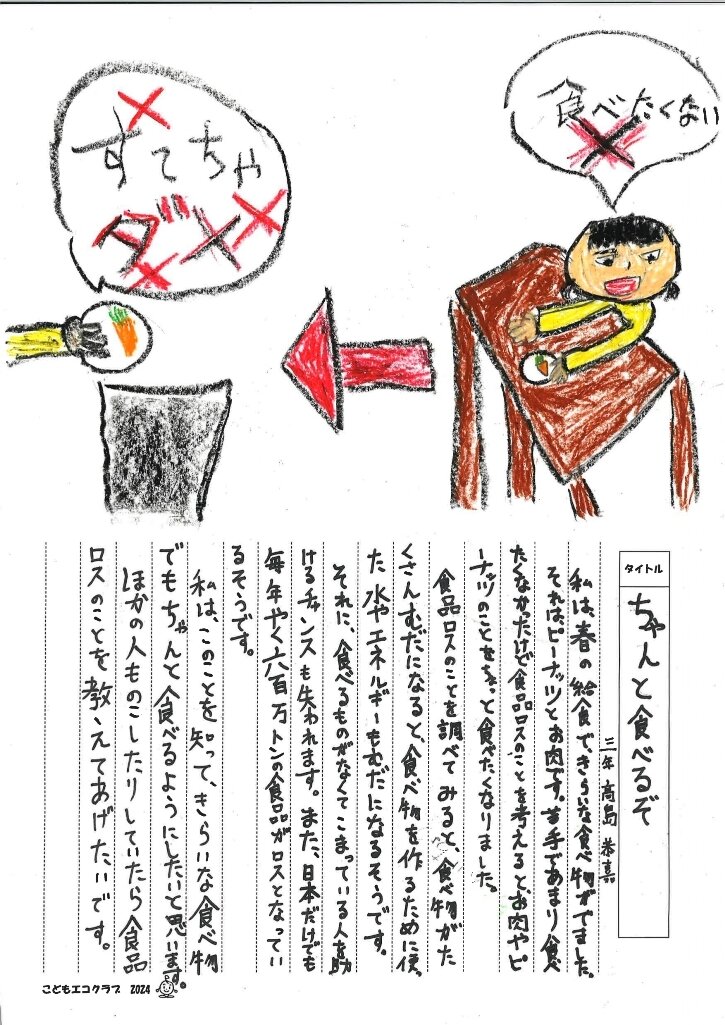 食べたくない
すてちゃ
ダメ
タイトル
ちゃんと食べるぞ
三年 高島 恭嘉
私は、春の給食で、きらいな食べ物がでました。
それは、ピーナッツとお肉です。苦手であまり食べ
たくなかったけど食品ロスのことを考えるとお肉やピ
ーナッツのことをちょっと食べたくなりました。
食品ロスのことを調べてみると、食べ物がた
くさんむだになると、食べ物を作るために使っ
た水やエネルギーもむだになるそうです。
それに、食べるものがなくてこまっている人を助
けるチャンスも失われます。また、日本だけでも
毎年やく六百万トンの食品がロスとなってい
るそうです。
私は、このことを知って、きらいな食べ物
でもちゃんと食べるようにしたいと思います。
ほかの人ものこしたりしていたら食品
ロスのことを教えてあげたいです。
こどもエコクラブ 2024